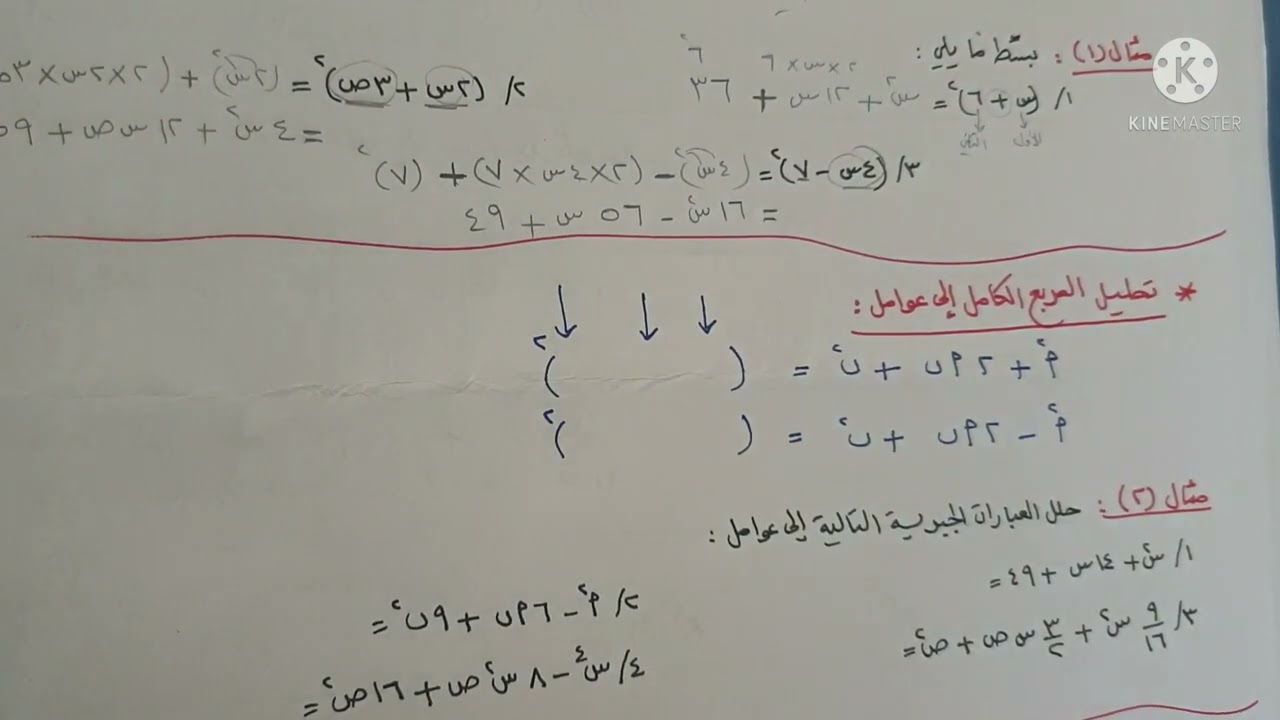 مثال (١) : بسّط ما يلي :
١/ (س + ٦)² = س² + ١٢س + ٣٦
٢×س×٦
٦²
الأول الثاني
٢/ (٢س + ٣ص)² = (٢س)² + (٢×٢س×٣ص
= ٤س² + ١٢ س ص + ٩ص
٣/ (٤س − ٧)² = (٤س)² − (٢×٤س×٧) + (٧)²
= ١٦س² − ٥٦ س + ٤٩
* تحليل المربع الكامل إلى عوامل :
م² + ٢م ن + ن² = ( )²
م² − ٢م ن + ن² = ( )²
مثال (٢) : حلل العبارات الجبرية التالية إلى عوامل :
١/ س² + ١٤س + ٤٩ =
٢/ م² − ٦م ن + ٩ن² =
٣/ ٩/١٦ س² + ٣/٢ س ص + ص² =
٤/ س⁴ − ٨ س² ص + ١٦ص² =
KINEMASTER